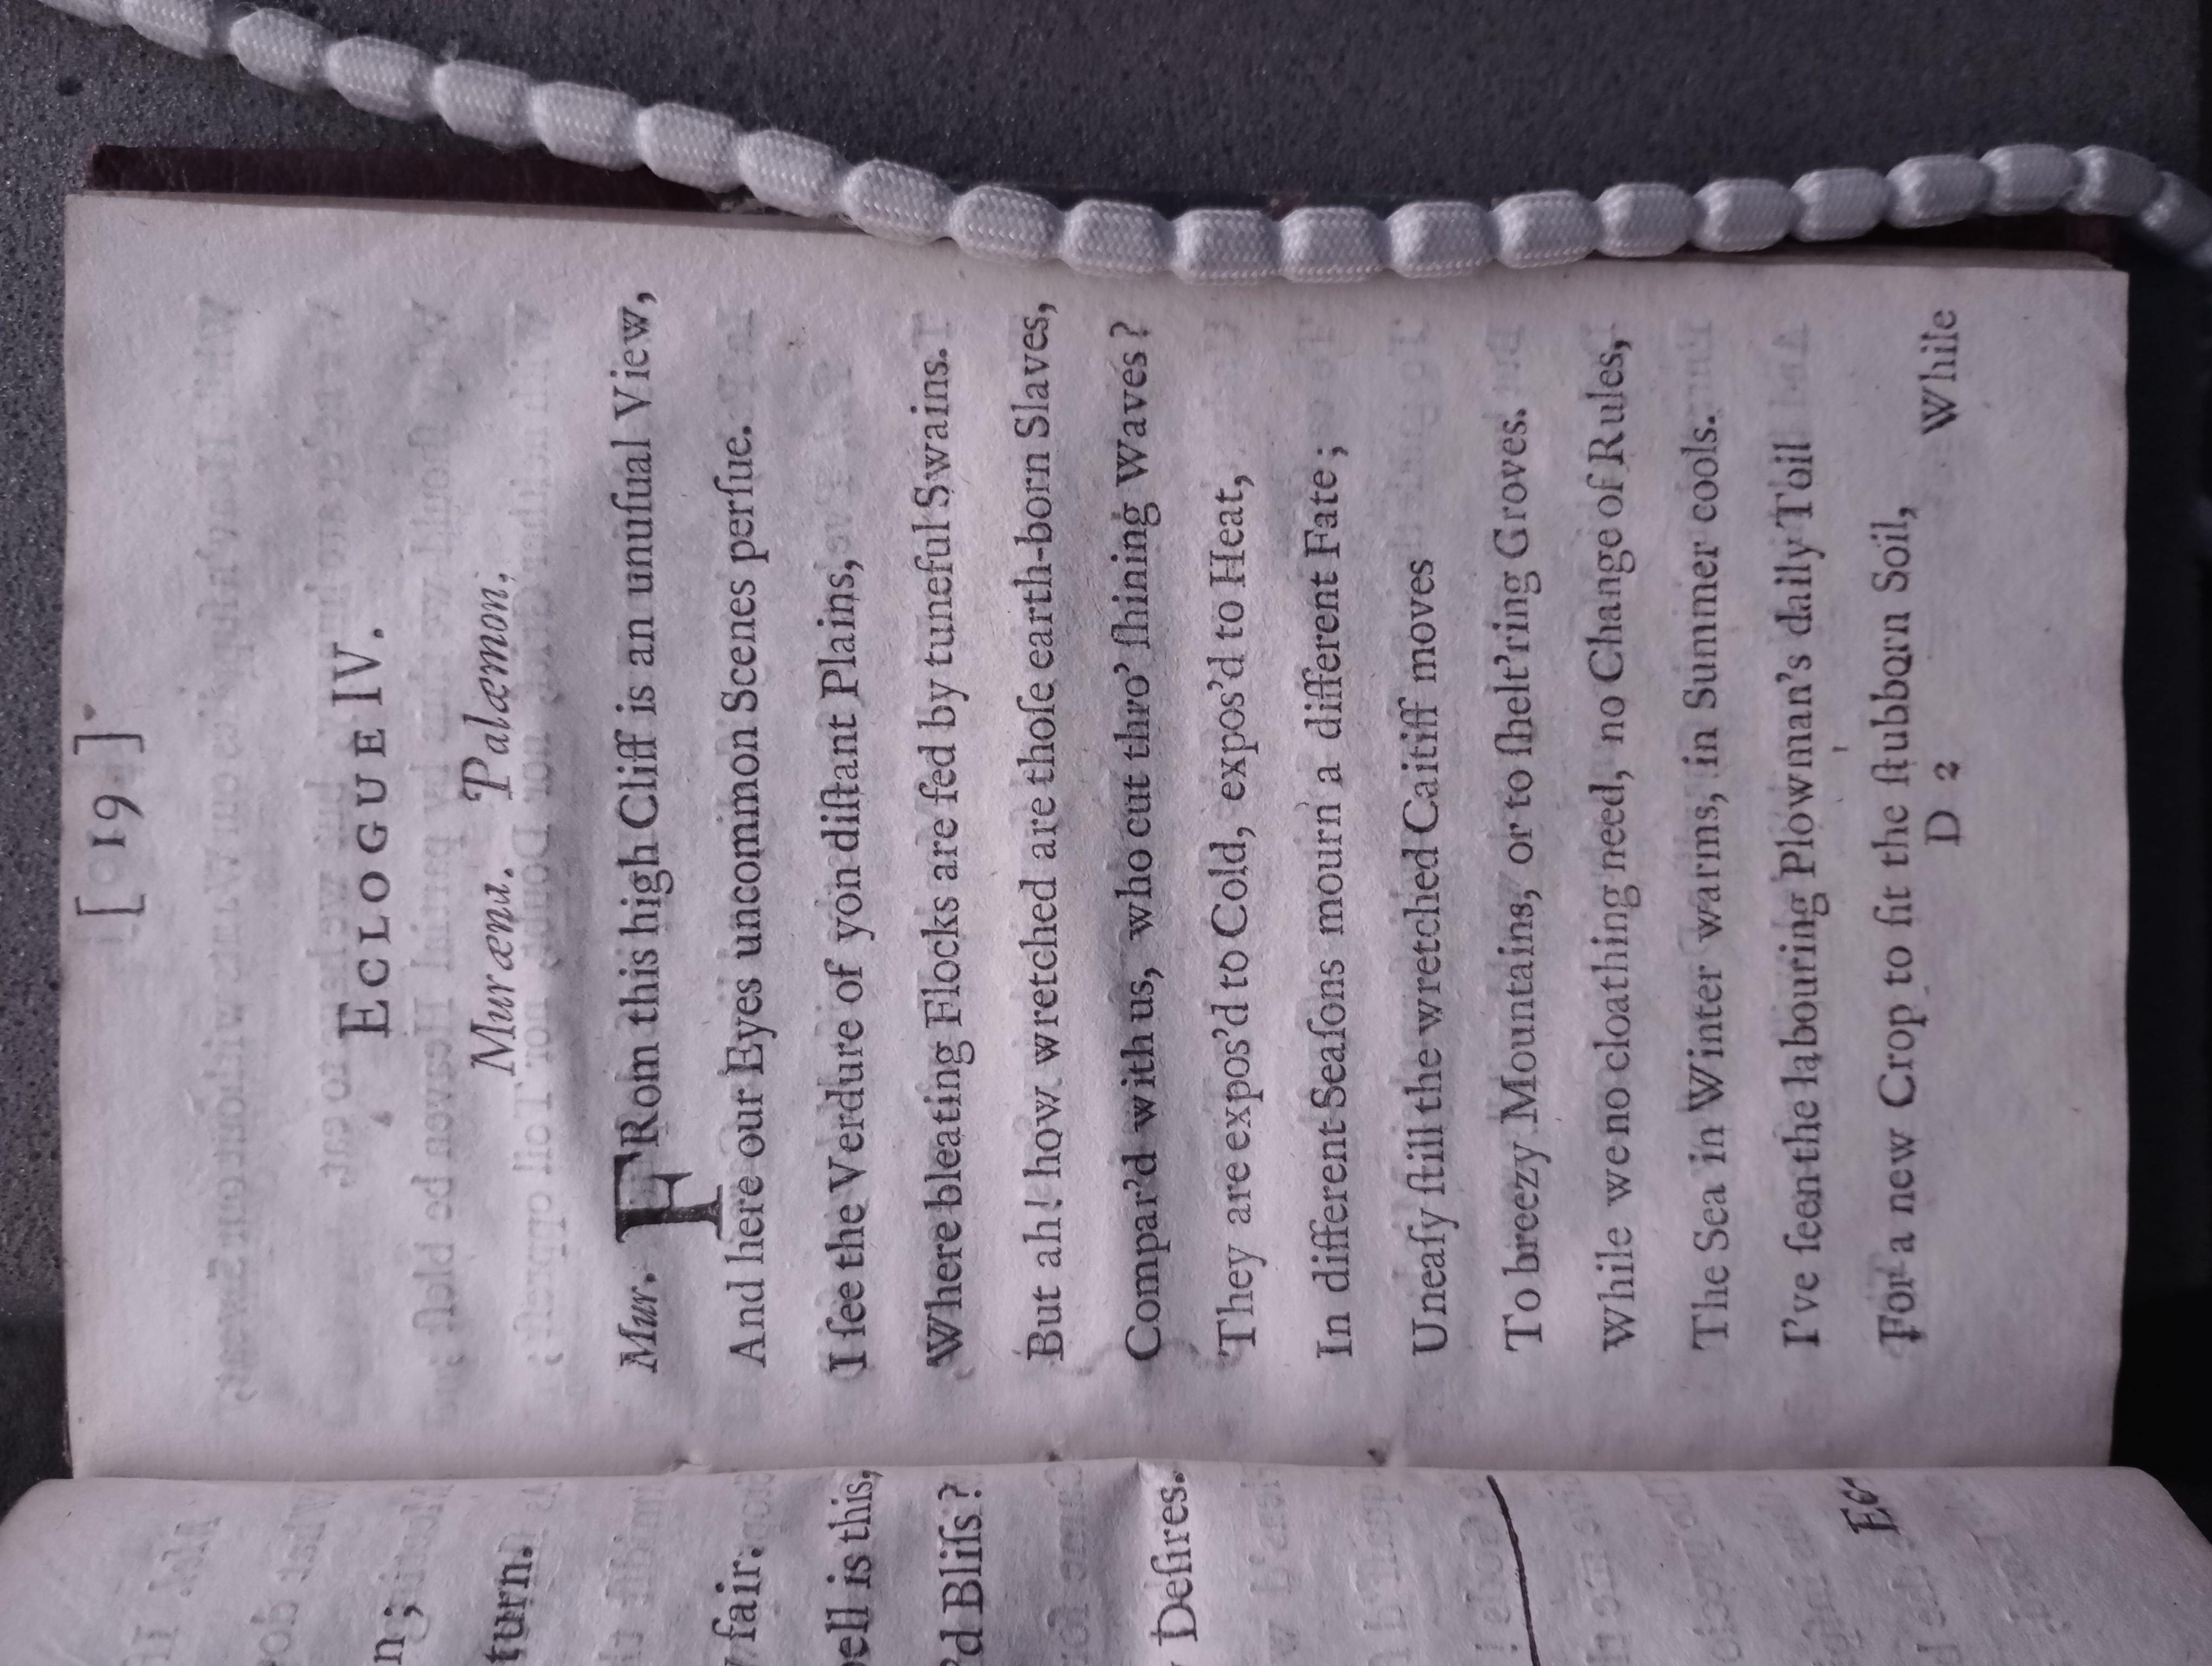 [ 19 ]
ECLOGUE IV.
Muræna. Palæmon.
Mur. FRom this high Cliff is an unuſual View,
And here our Eyes uncommon Scenes perſue.
I ſee the Verdure of yon diſtant Plains,
Where bleating Flocks are fed by tuneful Swains.
But ah! how wretched are thoſe earth-born Slaves,
Compar'd with us, who cut thro' ſhining Waves?
They are expos'd to Cold, expos'd to Heat,
In different Seaſons mourn a different Fate;
Uneaſy ſtill the wretched Caitiff moves
To breezy Mountains, or to ſhelt'ring Groves.
While we no cloathing need, no Change of Rules,
The Sea in Winter warms, in Summer cools.
I've ſeen the labouring Plowman's daily Toil
For a new Crop to fit the ſtubborn Soil,
D 2
While
n;
turn.
fair.
ell is this,
'd Bliſs?
Deſires.
Ec-